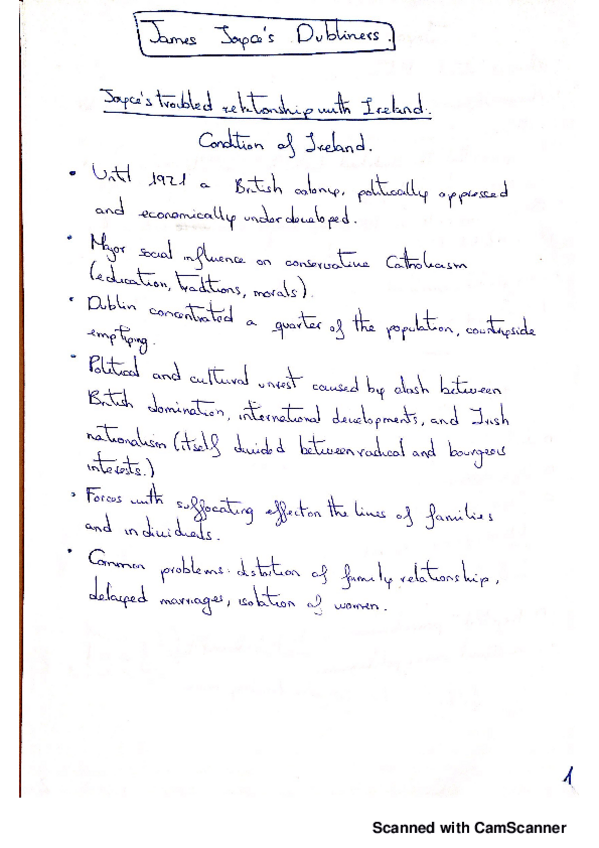 James Joyce's Dubliners.
Joyce's troubled relationship with Ireland.
Condition of Ireland.
• Until 1921 a British colony, politically oppressed
and economically underdeveloped.
• Major social influence on conservative Catholicism
(education, traditions, morals).
• Dublin concentrated a quarter of the population, countryside
emptying.
• Political and cultural unrest caused by clash between
British domination, international developments, and Irish
nationalism (itself divided between radical and bourgeois
interests.)
• Forces with suffocating effect on the lives of families
and individuals.
• Common problems: distortion of family relationship,
delayed marriages, isolation of women.
1
Scanned with CamScanner